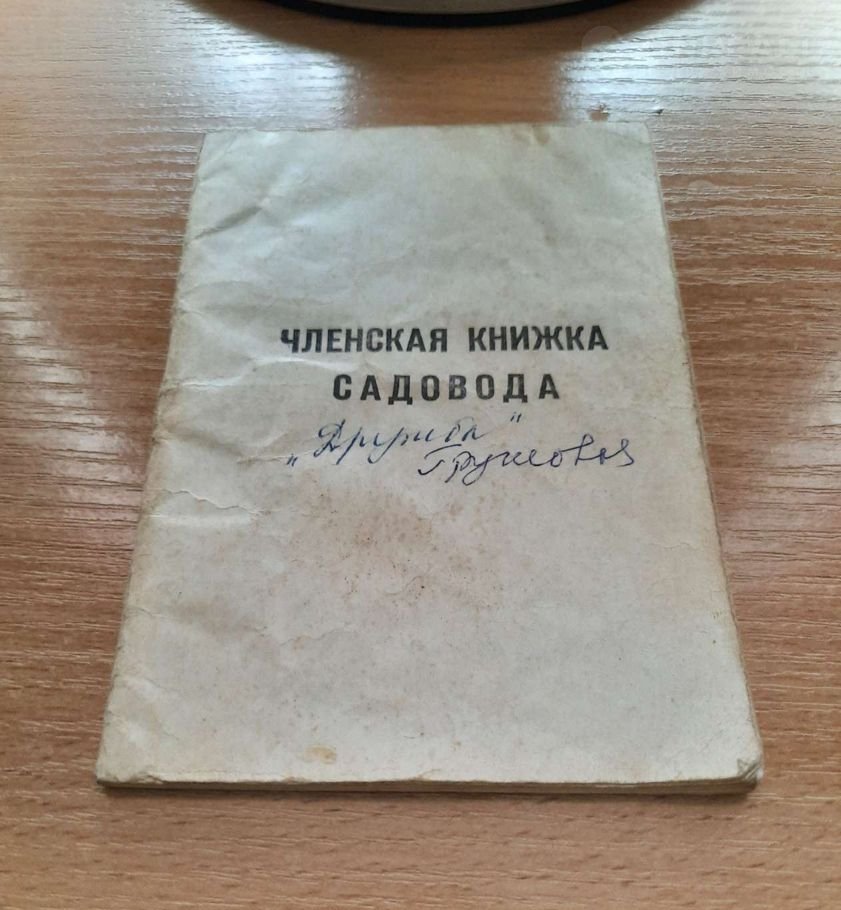 ЧЛЕНСКАЯ КНИЖКА
САДОВОДА
„Дружба"
Грушовая